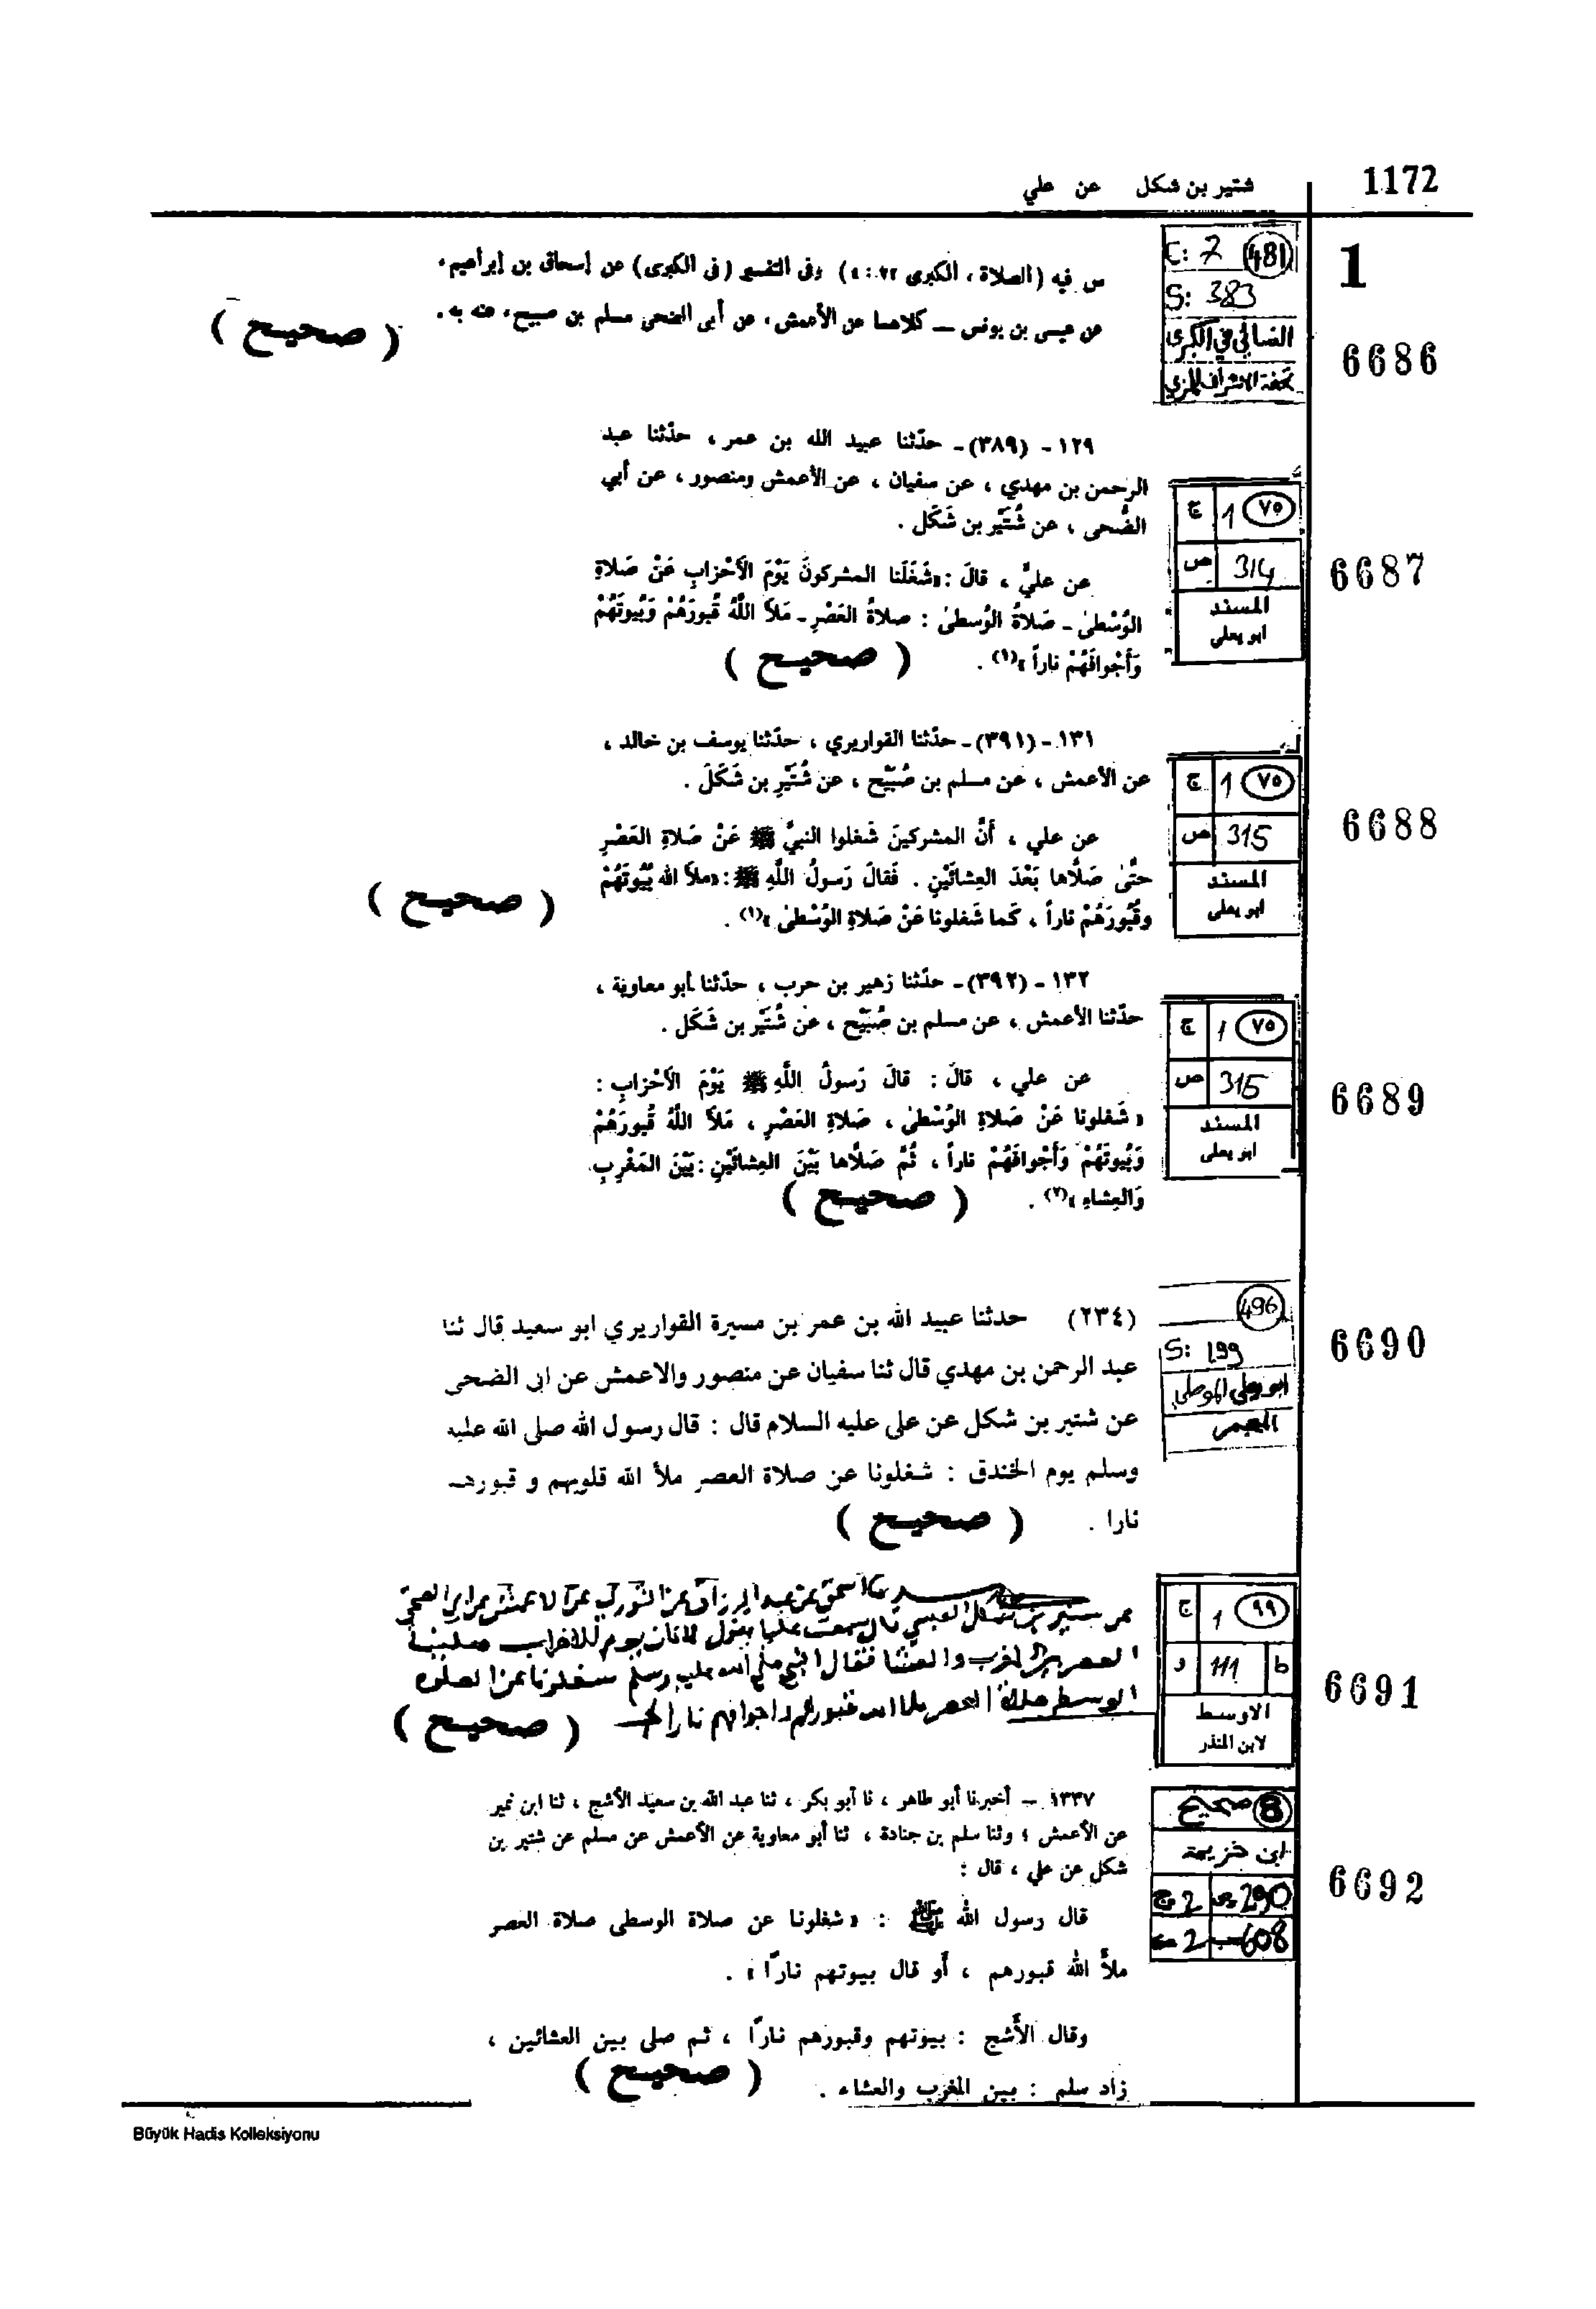 1172
شتير بن شكل عن علي
1
C: 7 481
S: 383
النسائي في الكبرى
تحفة الاشراف للمزي
6686
س فيه (الصلاة ، الكبرى ٢٢ : ٤) وفى التفسير (فى الكبرى) عن إسحاق بن إبراهيم،
عن عيسى بن يونس — كلاهما عن الأعمش، عن أبى الضحى مسلم بن صبيح، عنه به.
( صحيح )
6687
ج 1 ٧٥
ص 314
المسند
ابو يعلى
١٢٩ - (٣٨٩) - حدّثنا عبيد الله بن عمر ، حدّثنا عبد
الرحمن بن مهدي ، عن سفيان ، عن الأعمش ومنصور ، عن أبي
الضُّحى ، عن شُتَيْر بن شَكَل .
عن عليٍّ ، قالَ : «شَغَلَنا المشركونَ يَوْمَ الأَحْزابِ عَنْ صَلاةِ
الوُسْطىٰ - صَلاةُ الوُسطىٰ : صلاةُ العَصْرِ - مَلأَ اللَّهُ قُبورَهُمْ وَبُيوتَهُمْ
وَأَجْوافَهُمْ ناراً »(١) .
( صحيح )
6688
ج 1 ٧٥
ص 315
المسند
ابو يعلى
١٣١ - (٣٩١) - حدّثنا القواريري ، حدّثنا يوسف بن خالد ،
عن الأعمش ، عن مسلم بن صُبَيْح ، عن شُتَيْرِ بن شَكَلَ .
عن علي ، أَنَّ المشركينَ شَغلوا النبيَّ ﷺ عَنْ صَلاةِ العَصْرِ
حتَّىٰ صَلَّاها بَعْدَ العِشائَيْنِ . فَقالَ رَسولُ اللَّهِ ﷺ : «ملأَ الله بُيُوتَهُمْ
وقُبُورَهُمْ ناراً ، كَما شَغلونا عَنْ صَلاةِ الوُسْطىٰ »(١) .
( صحيح )
6689
ج 1 ٧٥
ص 315
المسند
ابو يعلى
١٣٢ - (٣٩٢) - حدّثنا زهير بن حرب ، حدّثنا أبو معاوية ،
حدّثنا الأعمش ، عن مسلم بن صُبَيْح ، عن شُتَيْر بن شَكَل .
عن علي ، قالَ : قالَ رَسولُ اللَّهِ ﷺ يَوْمَ الأَحْزابِ :
« شَغلونا عَنْ صَلاةِ الوُسْطىٰ ، صَلاةِ العَصْرِ ، مَلأَ اللَّهُ قُبورَهُمْ
وَبُيوتَهُمْ وَأَجْوافَهُمْ ناراً ، ثُمَّ صَلَّاها بَيْنَ العِشائَيْنِ : بَيْنَ المَغْرِبِ
وَالعِشاءِ »(٢) .
( صحيح )
6690
496
S: 199
ابو يعلى الموصلي
المعجم
(٢٣٤) حدثنا عبيد الله بن عمر بن مسيرة القواريري ابو سعيد قال ثنا
عبد الرحمن بن مهدي قال ثنا سفيان عن منصور والاعمش عن ابى الضحى
عن شتير بن شكل عن على عليه السلام قال : قال رسول الله صلى الله عليه
وسلم يوم الخندق : شغلونا عن صلاة العصر ملأ الله قلوبهم و قبورهـ
نارا .
( صحيح )
6691
ج 1 ٩٩
و 111 ط
الاوسط
لابن المنذر
اسحق عن عبد الرزاق عن الثوري عن الاعمش عن ابي الضحى
عن شتير بن شكل العبسي قال سمعت عليا يقول لما كان يوم الاحزاب صلينا
العصر بين المغرب والعشا فقال النبي صلى الله عليه وسلم شغلونا عن الصلوه
الوسطى صلاة العصر ملا الله قبورهم واجوافهم نارا
( صحيح )
6692
صحيح 8
ابن خزيمة
ج 2 ص 290
2 608
١٣٣٧ - أخبرنا أبو طاهر ، نا أبو بكر ، ثنا عبد الله بن سعيد الأشج ، ثنا ابن نمير
عن الأعمش ؛ وثنا سلم بن جنادة ، ثنا أبو معاوية عن الأعمش عن مسلم عن شتير بن
شكل عن علي ، قال :
قال رسول الله ﷺ : « شغلونا عن صلاة الوسطى صلاة العصر
ملأ الله قبورهم ، أو قال بيوتهم نارًا » .
وقال الأشج : بيوتهم وقبورهم نارًا ، ثم صلى بين العشائين ،
زاد سلم : بين المغرب والعشاء .
( صحيح )
Büyük Hadis Kolleksiyonu